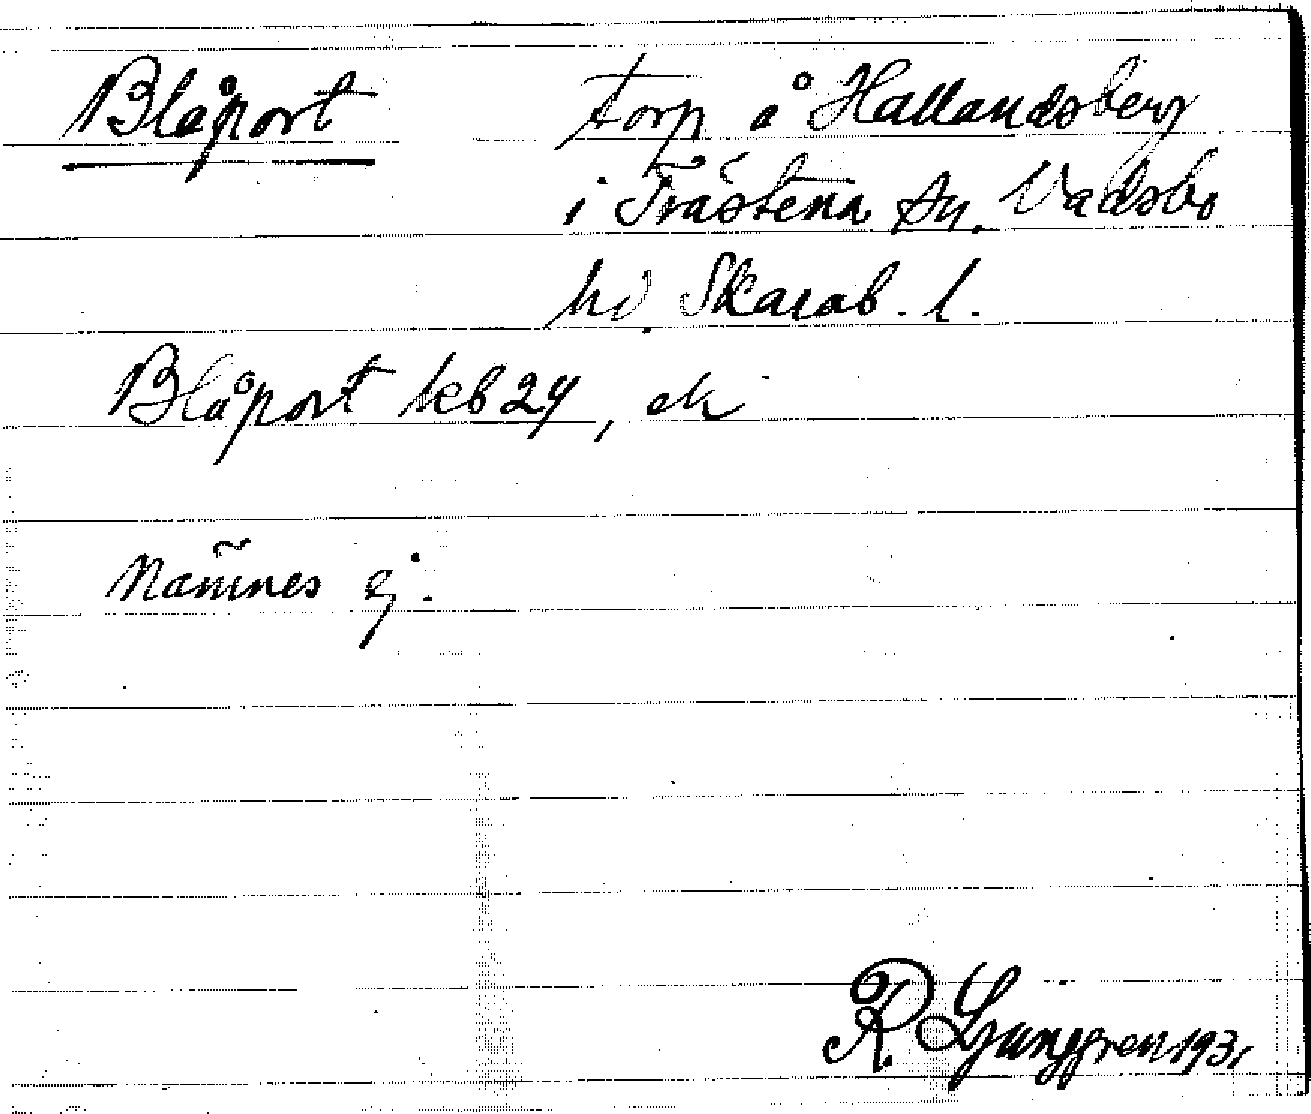 Blåport torp å Hallandsberg
i Trästena sn. Vadsbo
hd. Skarab. l.
Blåport kb 24, ek
Nämnes ej.
R. Ljunggren 1931